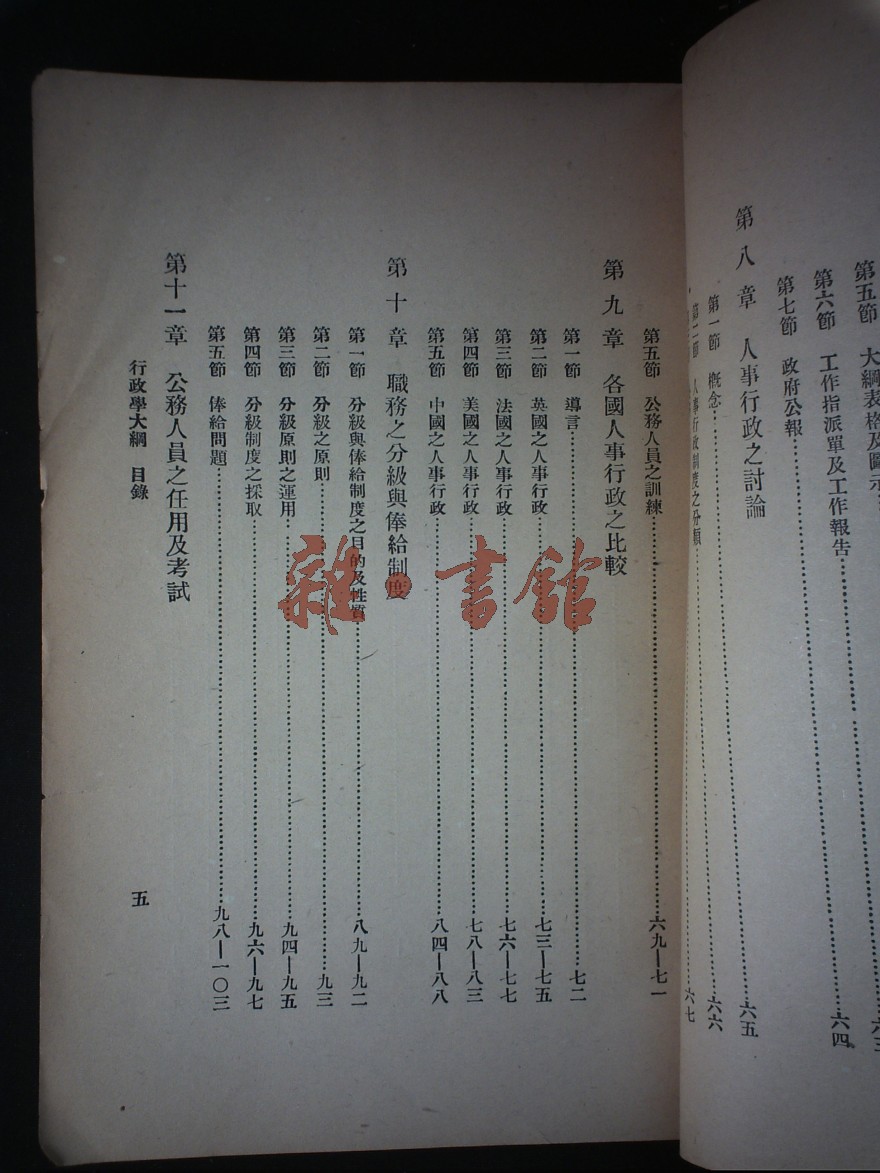 第五節 大綱表格及圖示
第六節 工作指派單及工作報告……六四
第七節 政府公報……六五
第八章 人事行政之討論
第一節 概念……六六
第二節 人事行政制度之分類……六七
第五節 公務人員之訓練……六九—七一
第九章 各國人事行政之比較
第一節 導言……七二
第二節 英國之人事行政……七三—七五
第三節 法國之人事行政……七六—七七
第四節 美國之人事行政……七八—八三
第五節 中國之人事行政……八四—八八
第十章 職務之分級與俸給制度
第一節 分級與俸給制度之目的及性質……八九—九二
第二節 分級之原則……九三
第三節 分級原則之運用……九四—九五
第四節 分級制度之採取……九六—九七
第五節 俸給問題……九八—一〇三
第十一章 公務人員之任用及考試
行政學大綱 目錄
五
雜·書館